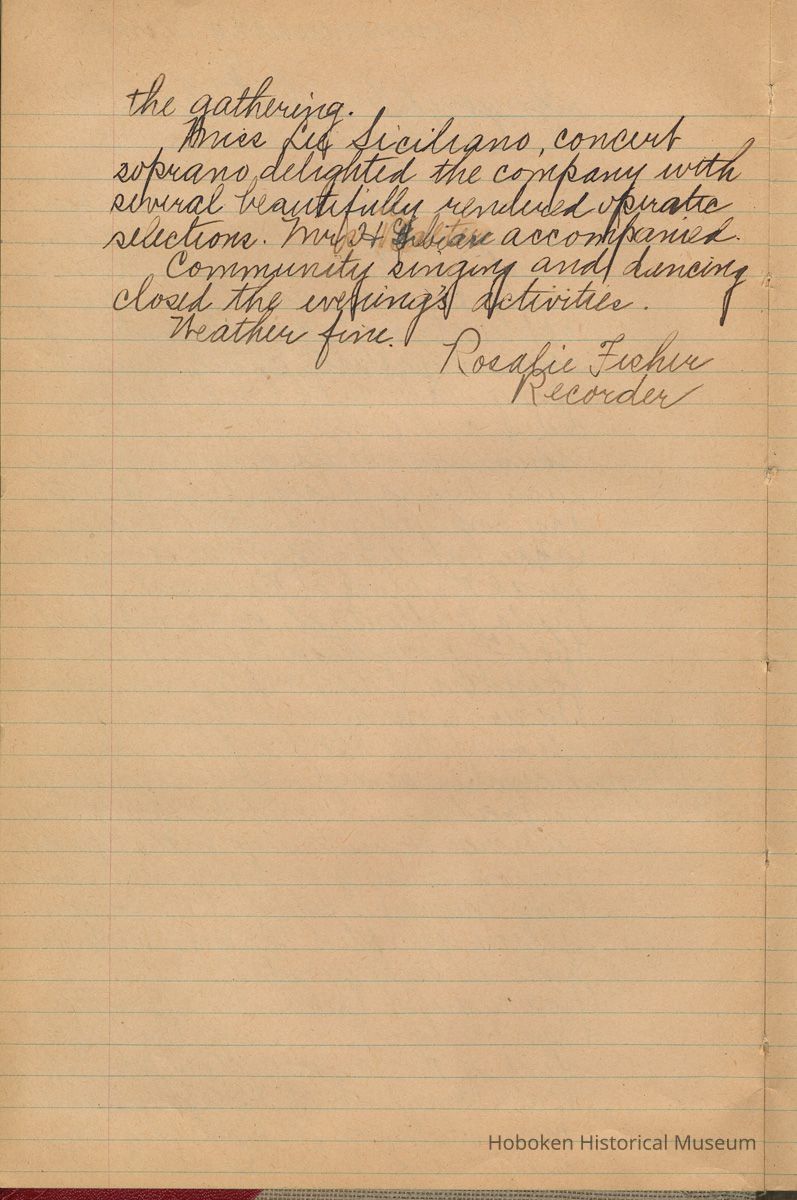 the gathering.
Miss Lee Siciliano, concert
soprano, delighted the company with
several beautifully rendered operatic
selections. Mr. H. accompanied.
Community singing and dancing
closed the evening's activities.
Weather fine.
Rosalie Fisher
Recorder
Hoboken Historical Museum